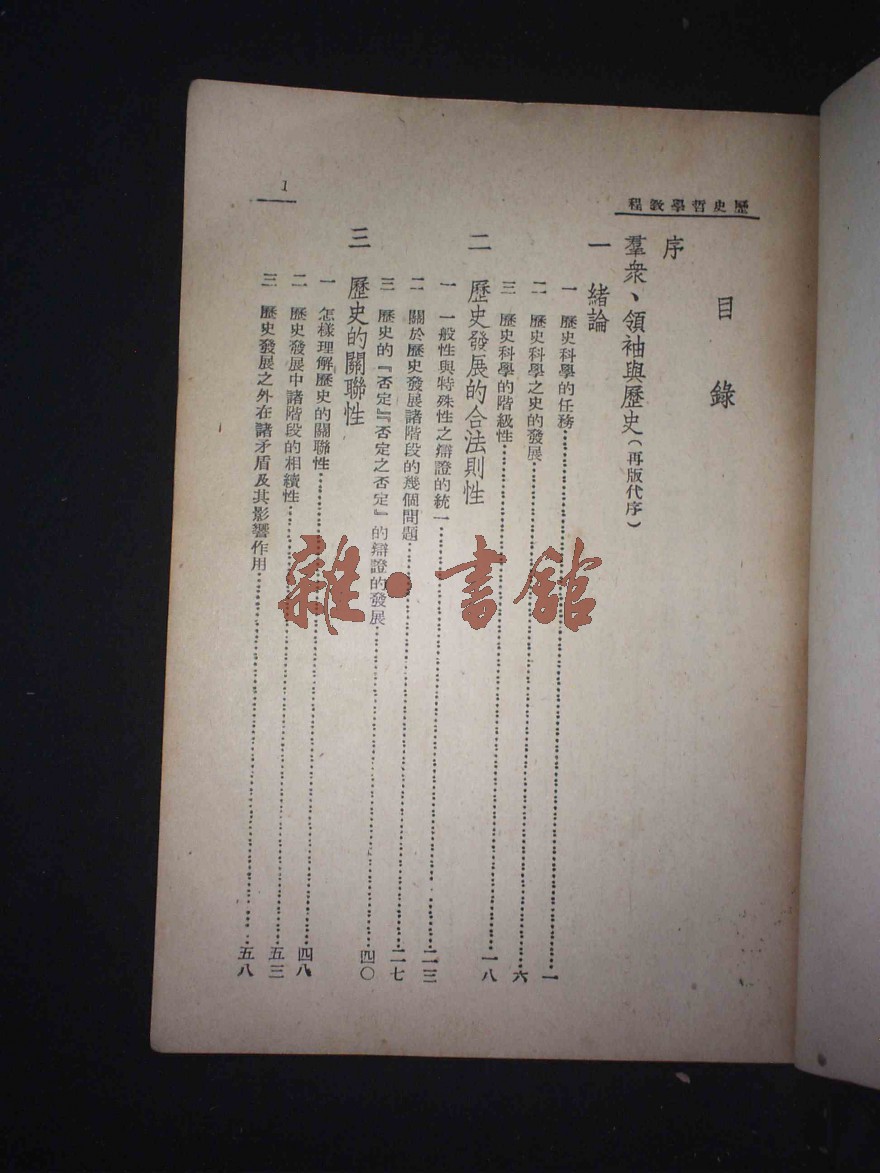 程教學哲史歷
目錄
序
羣衆、領袖與歷史(再版代序)
一 緒論
一 歷史科學的任務……一
二 歷史科學之史的發展……六
三 歷史科學的階級性……一八
二 歷史發展的合法則性
一 一般性與特殊性之辯證的統一……二三
二 關於歷史發展諸階段的幾個問題……二七
三 歷史的『否定』『否定之否定』的辯證的發展……四〇
三 歷史的關聯性
一 怎樣理解歷史的關聯性……四八
二 歷史發展中諸階段的相續性……五三
三 歷史發展之外在諸矛盾及其影響作用……五八
1
雜·書館